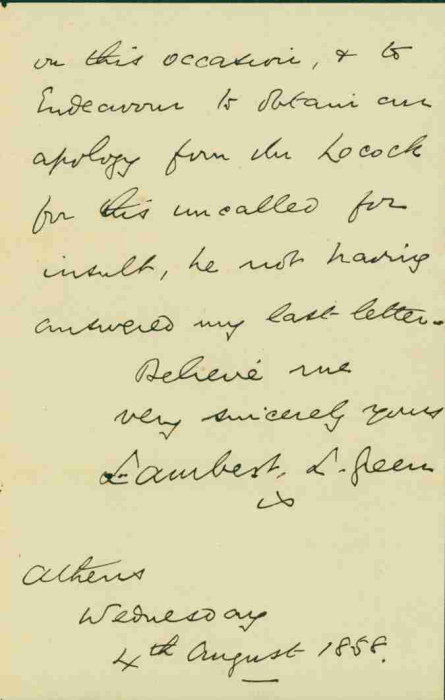 on this occasion, & to
Endeavour to obtain an
apology from Mr Locock
for this uncalled for
insult, he not having
answered my last letter.
Believe me
very sincerely yours
Lambert. L. Green
Athens
Wednesday
4th August 1858.